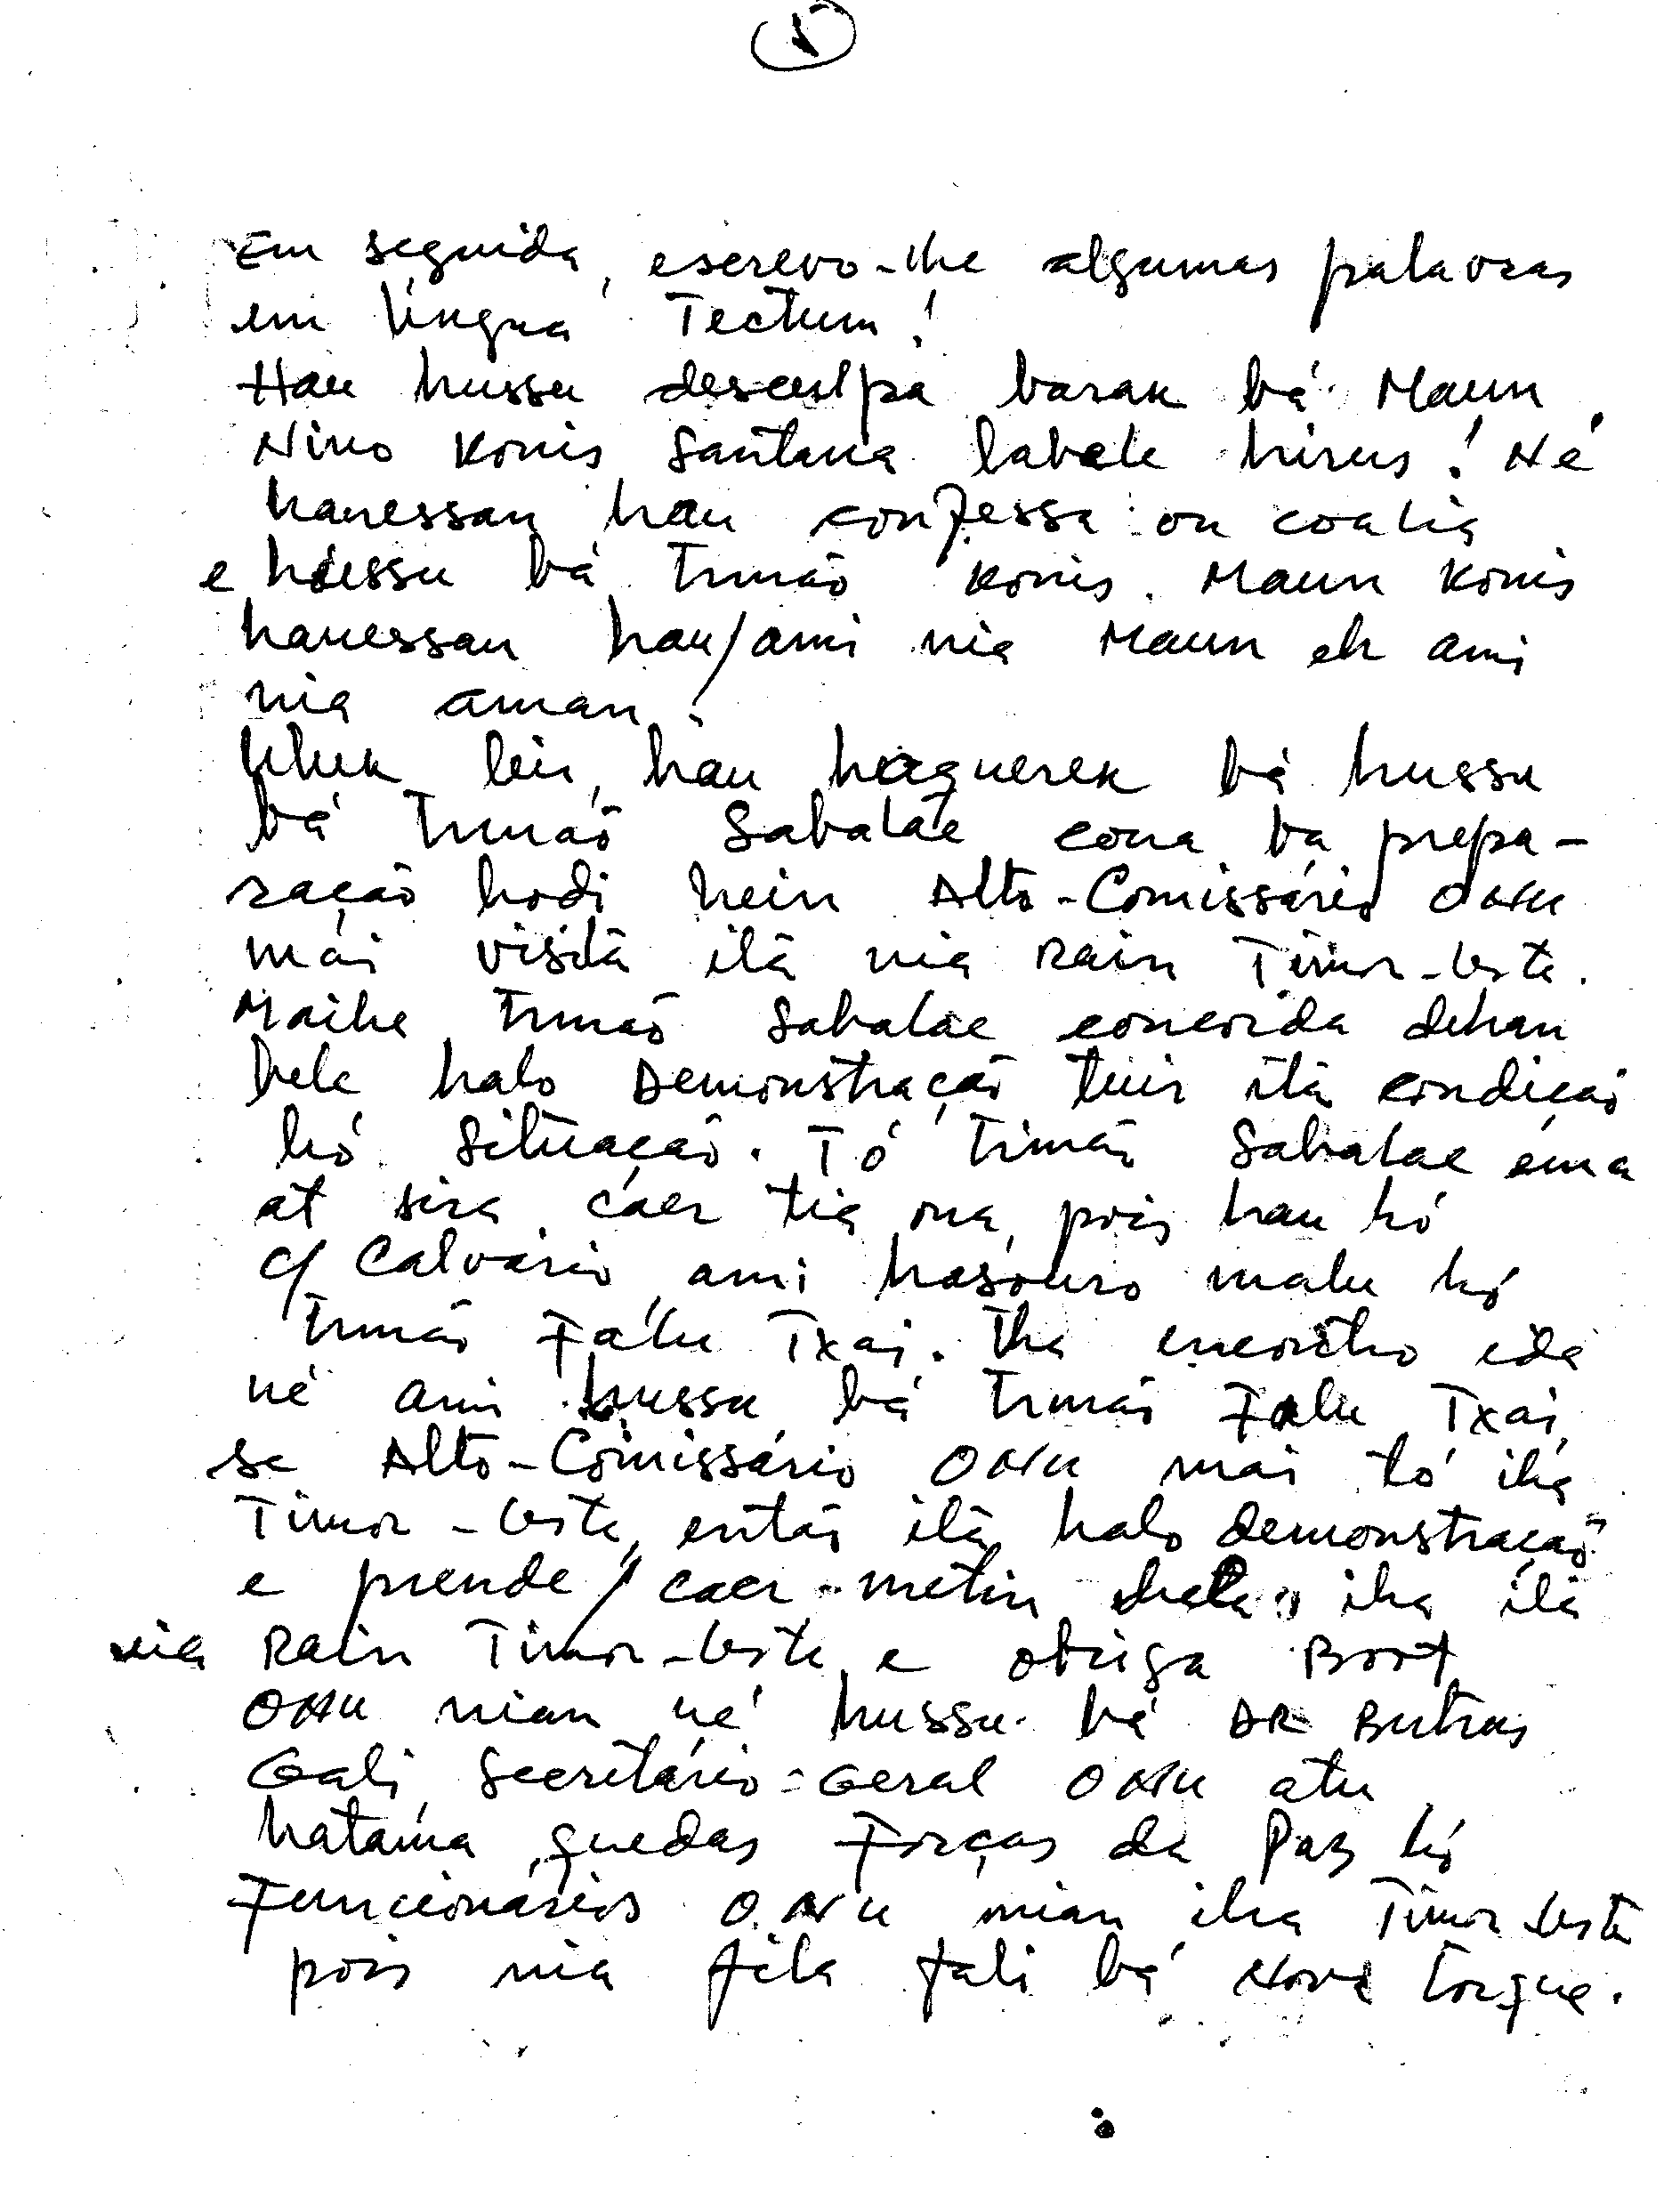 Em seguida, escrevo-lhe algumas palavras
em língua Tectum!
Hau hussu desculpa barak bá Maun
Nino Konis Santana labele hirus! Né
hanessan hau confessa ou coalia
e hussu bá Irmão Konis. Maun Konis
hanessan hau/ami nia Maun eh ami
nia aman.
Uluk liu, hau haquerek bá hussu
bá Irmão Sabalae cona ba prepa-
ração hodi hein Alto-Comissário ONU
mai visita ita nia rain Timor-Leste.
Maibe Irmão Sabalae concorda dehan
bele halo Demonstração tuir ita condição
hó situação. Tó Irmão Sabalae ema
at sira caer tia ona, pois hau hó
c/ Calvário, ami hasouro malu hó
Irmão Falu Txai. Iha encontro ida
né ami hussu bá Irmão Falu Txai,
se Alto-Comissário ONU mai tó iha
Timor-Leste, então ita halo demonstração
e prende/caer-metin iha ita
nia Rain Timor-Leste e obriga Boot
ONU nian né hussu bá DR Butros
Gali, Secretário-Geral ONU atu
hatama quedas Forças da Paz hó
Funcionários ONU nian iha Timor Leste
pois nia fila fali bá Nova Iorque.